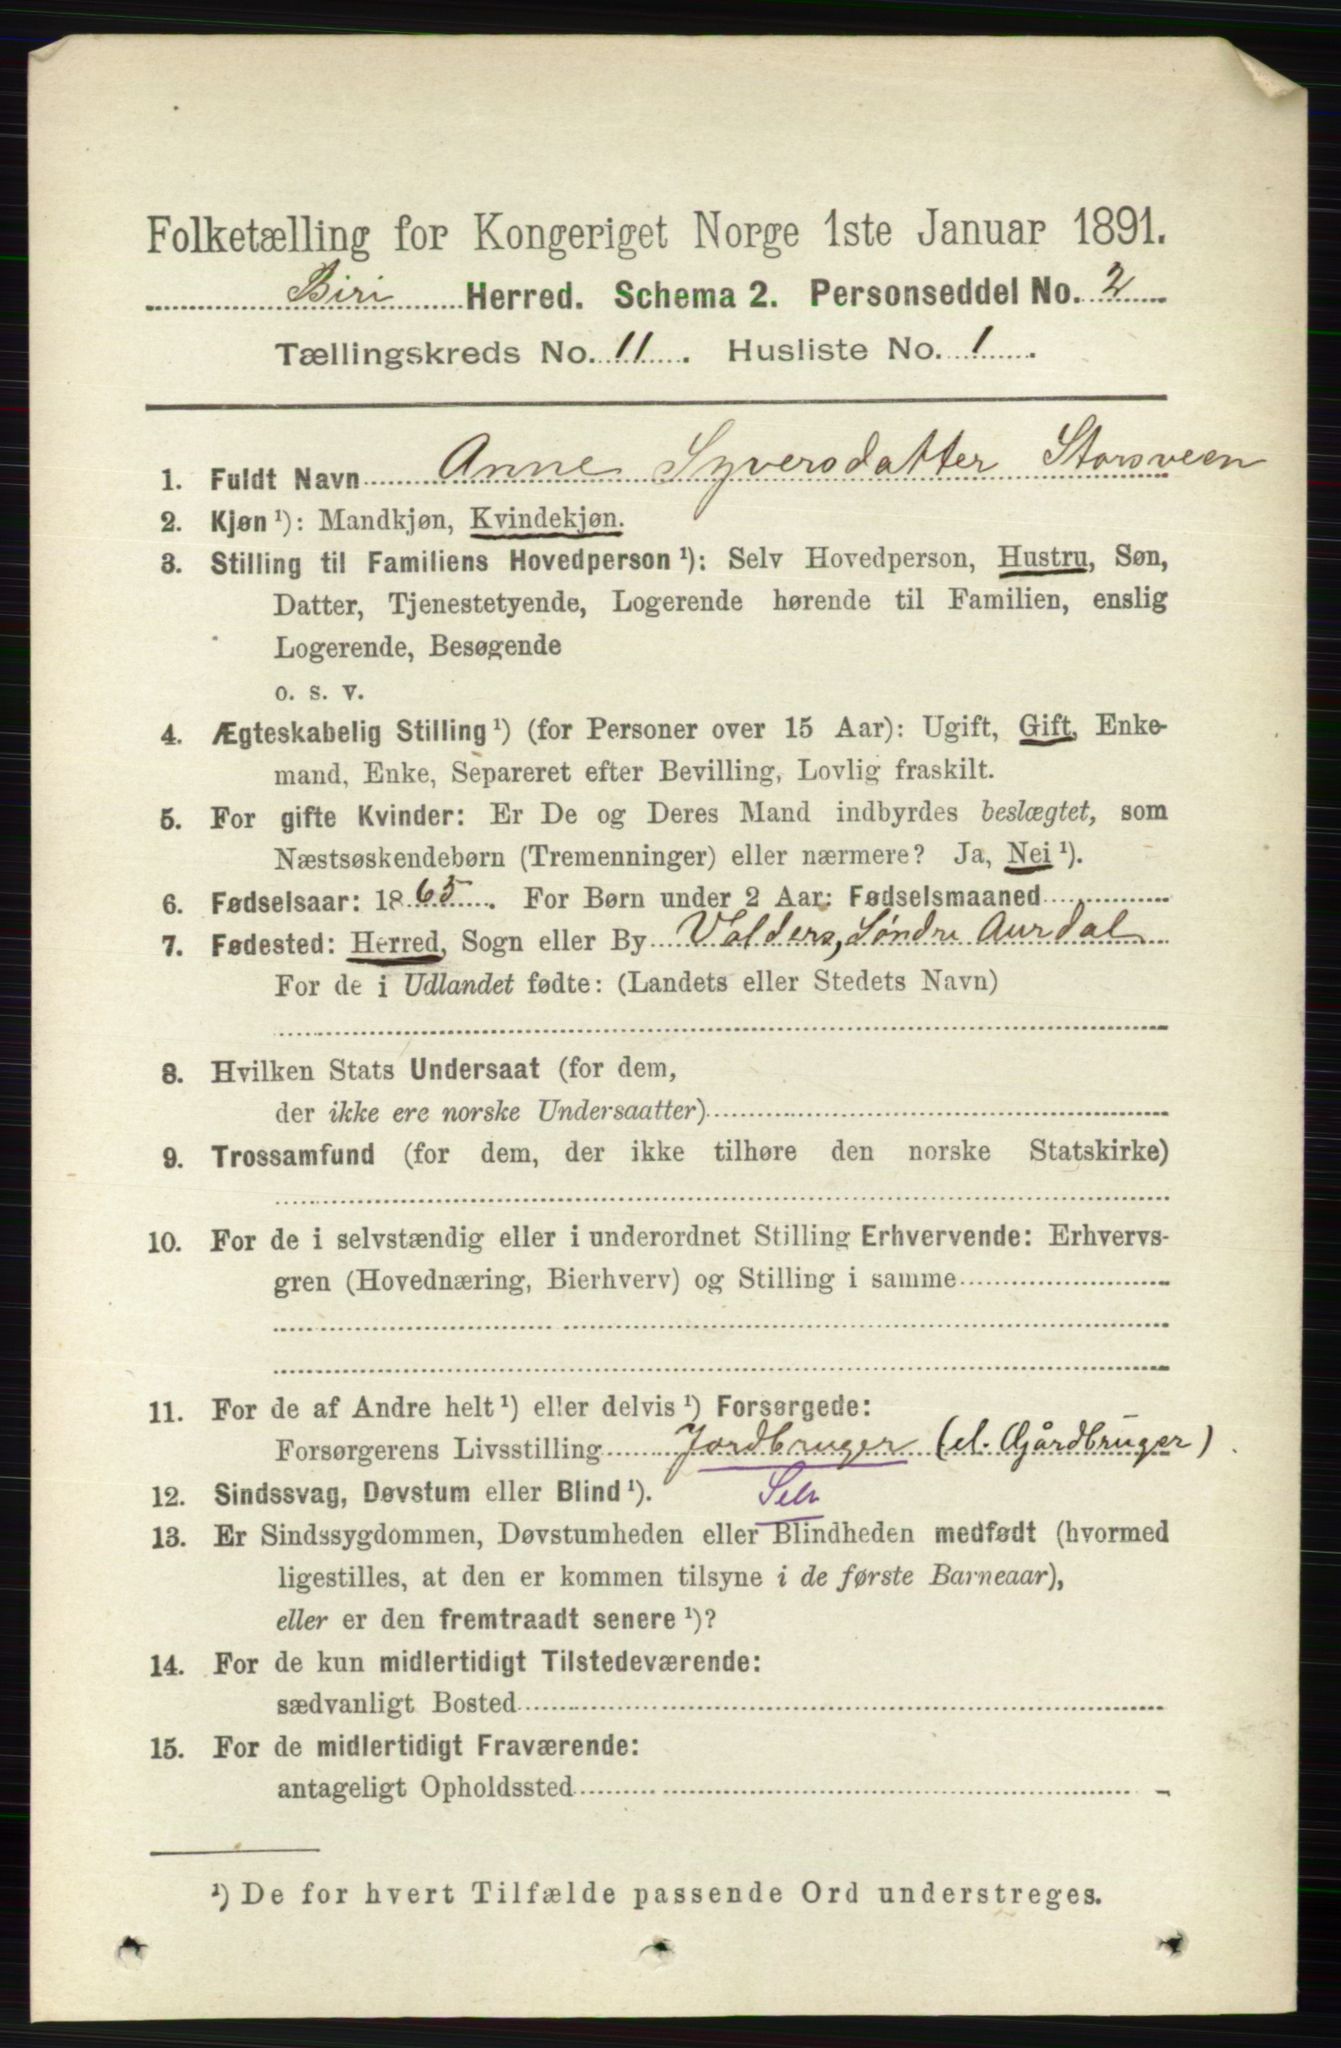 Folketælling for Kongeriget Norge 1ste Januar 1891.
Biri Herred. Schema 2. Personseddel No. 2
Tællingskreds No. 11. Husliste No. 1.
1. Fuldt Navn Anne Syversdatter Storsveen
2. Kjøn ¹): Mandkjøn, Kvindekjøn.
3. Stilling til Familiens Hovedperson ¹): Selv Hovedperson, Hustru, Søn,
Datter, Tjenestetyende, Logerende hørende til Familien, enslig
Logerende, Besøgende
o. s. v.
4. Ægteskabelig Stilling ¹) (for Personer over 15 Aar): Ugift, Gift, Enke-
mand, Enke, Separeret efter Bevilling, Lovlig fraskilt.
5. For gifte Kvinder: Er De og Deres Mand indbyrdes beslægtet, som
Næstsøskendebørn (Tremenninger) eller nærmere? Ja, Nei ¹).
6. Fødselsaar: 1865. For Børn under 2 Aar: Fødselsmaaned
7. Fødested: Herred, Sogn eller By Valders, Søndre Aurdal
For de i Udlandet fødte: (Landets eller Stedets Navn)
8. Hvilken Stats Undersaat (for dem,
der ikke ere norske Undersaatter)
9. Trossamfund (for dem, der ikke tilhøre den norske Statskirke)
10. For de i selvstændig eller i underordnet Stilling Erhvervende: Erhvervs-
gren (Hovednæring, Bierhverv) og Stilling i samme
11. For de af Andre helt ¹) eller delvis ¹) Forsørgede:
Forsørgerens Livsstilling Jordbruger (el. Gårdbruger)
12. Sindssvag, Døvstum eller Blind ¹). Selv
13. Er Sindssygdommen, Døvstumheden eller Blindheden medfødt (hvormed
ligestilles, at den er kommen tilsyne i de første Barneaar),
eller er den fremtraadt senere ¹)?
14. For de kun midlertidigt Tilstedeværende:
sædvanligt Bosted
15. For de midlertidigt Fraværende:
antageligt Opholdssted
¹) De for hvert Tilfælde passende Ord understreges.